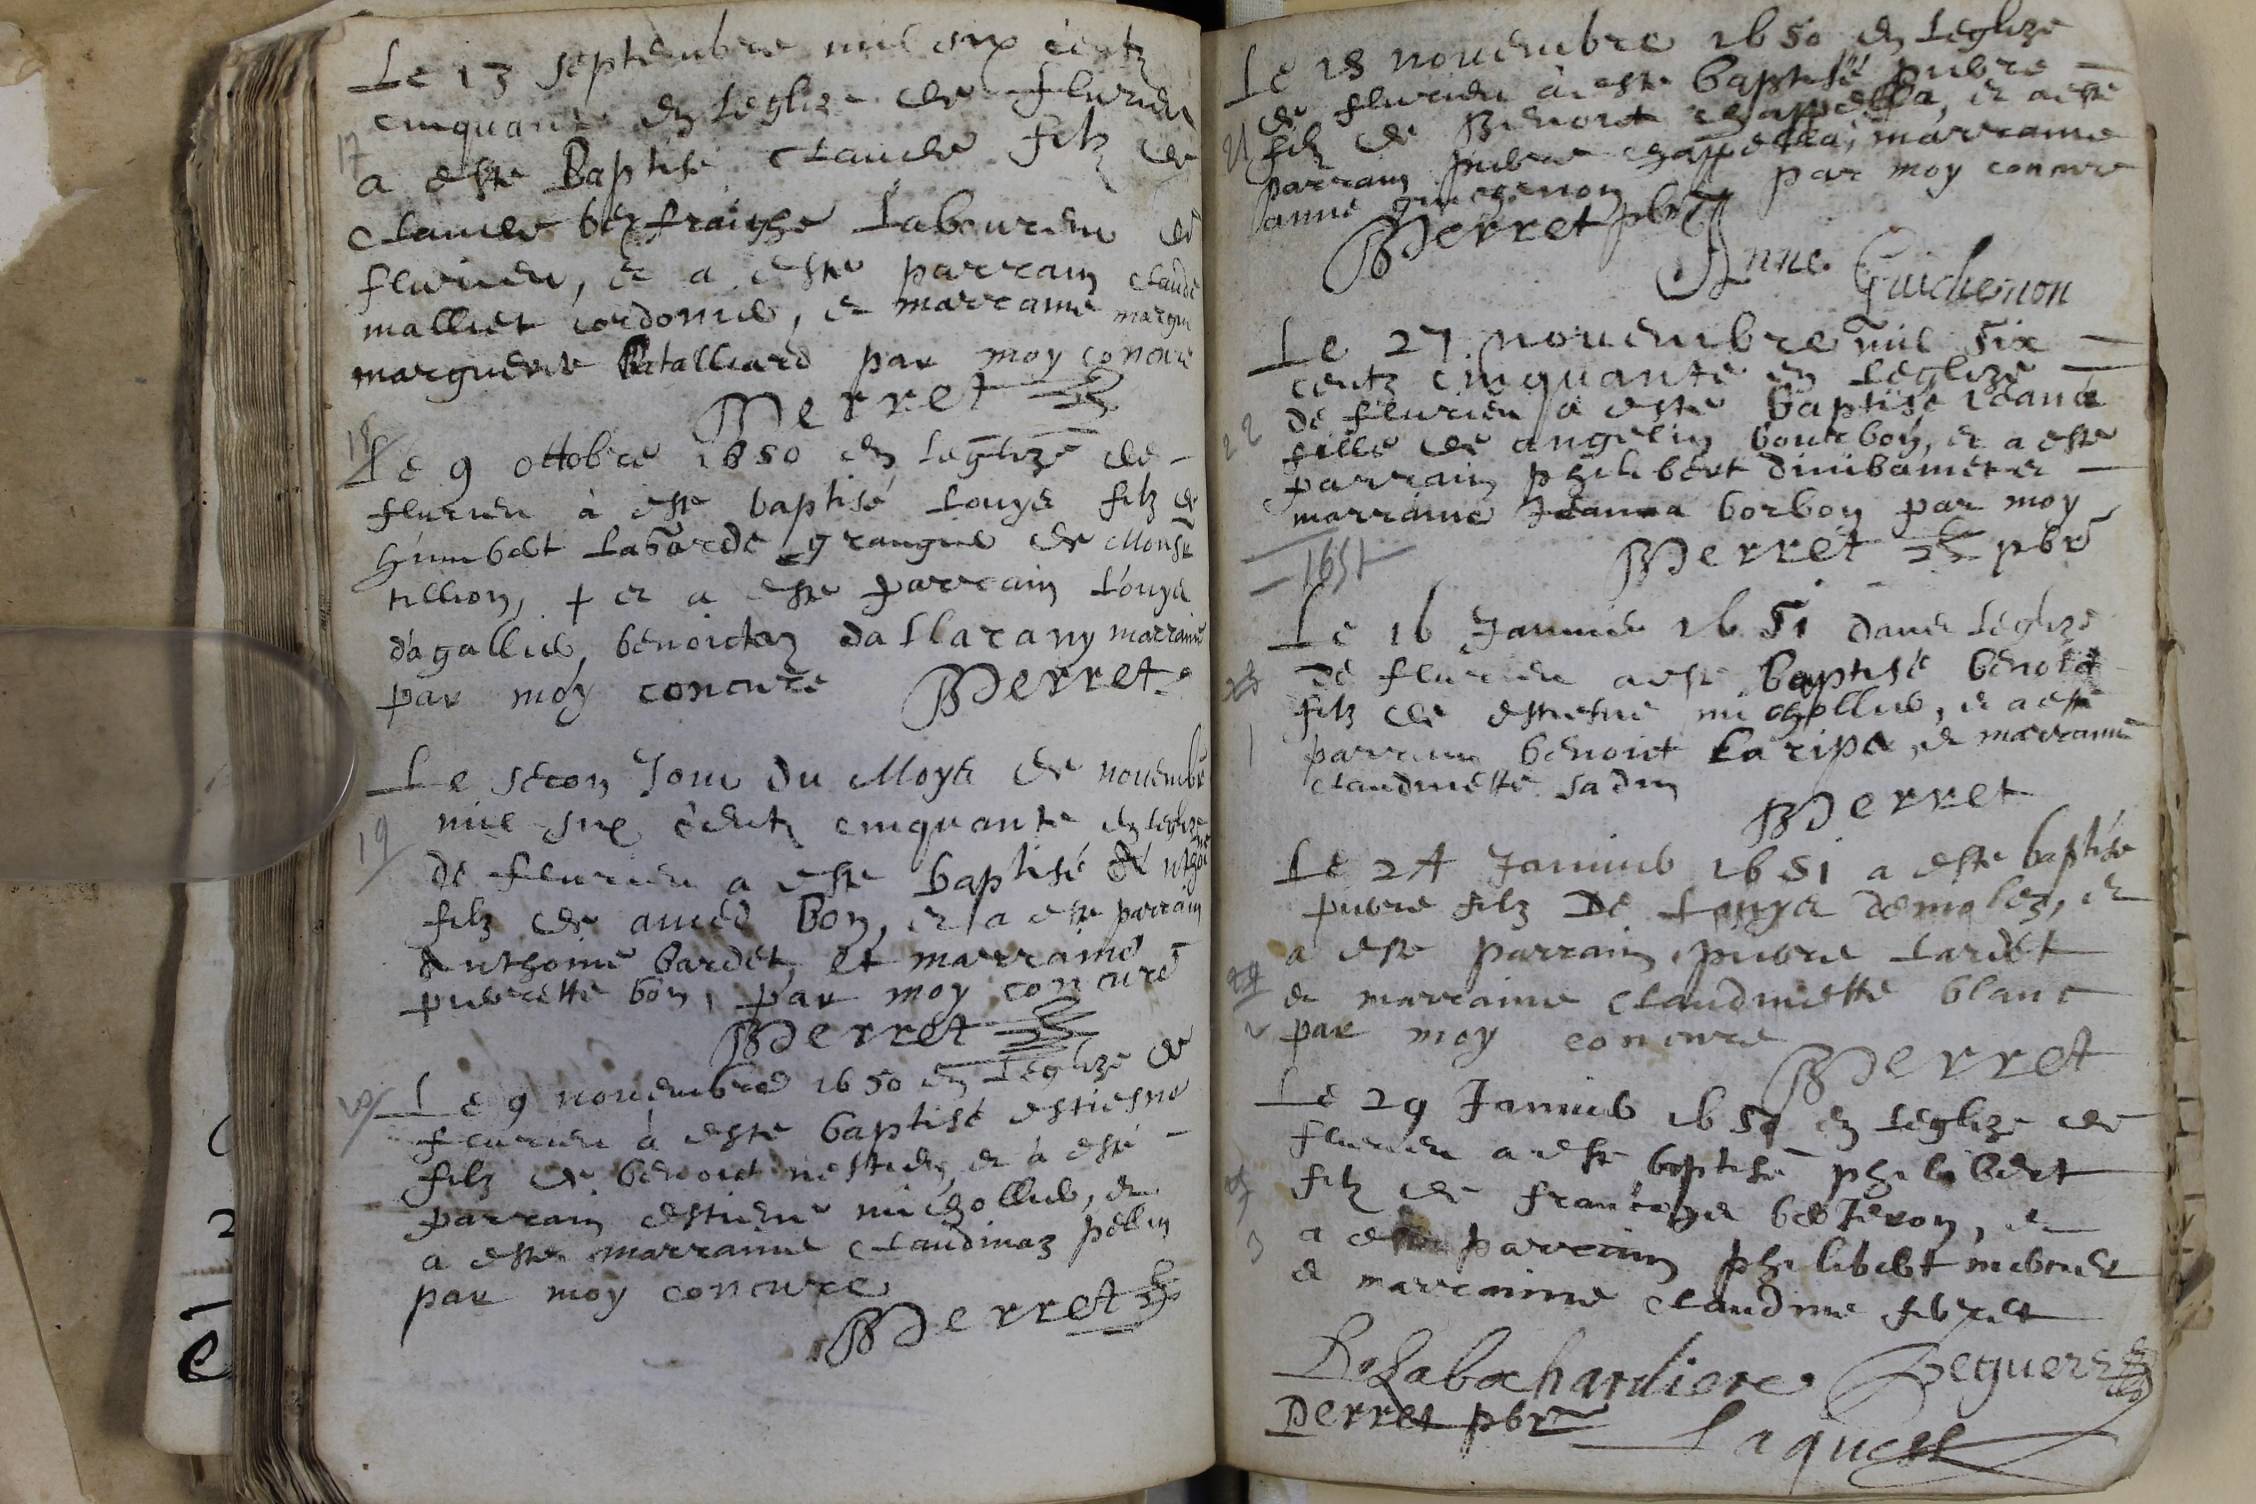 Le 13 septembre mil six centz
cinquante en leglize de flurieu
17
a este Baptisé Claude filz de
Claude laboureur de
flurieu, et a este parrain claude
malliet cordonie, et marraine margue
marguerite Batalliard par moy concure
Perret
18
Le 9 ottobre 1650 en leglize de
flurieu à este baptisé Louys filz de
humbert Labarde grangie de Mons
tillion, + et a este parrain Louys
dagallie, benoictaz dallarany marraine
par moy concure Perret
Le secon Jour du Moys de novembre
19
mil six centz cinquante en leglize
de flurieu a este baptisé Anthoine
filz de amed Bon, et a este parrain
Anthoine bardet, et marraine
pierrette bon, par moy concure
Perret
20
Le 9 novembre 1650 en leglize de
flurieu à este baptisé estiesne
filz de benoict et à esté
parrain estiene michollie, et
a este marraine Claudinaz pellin
par moy concure
Perret
Le 18 novembre 1650 en leglize
de flurieu à este baptisé pierre
21
filz de Benoit chappella, et a este
parrain pierre chappella, marraine
anne guichenon par moy concure
Perret pbre
Anne Guichenon
Le 27 novembre mil six
centz cinquante en leglize
de flurieu a este baptisé Jeana
22
fille de angelin bourbon, et a este
parrain philibert et
marraine Jeanna borbon par moy
Perret pbre
1651
Le 16 Janvie 1651 dans leglize
23
de flurieu a este Baptisé benoict
filz de estiesne michollie, et a este
1
parrain benoict Laripe, et marraine
claudinette sadin
Perret
Le 24 Janvie 1651 a este baptisé
pierre filz De Louys et
a este parrain pierre tardet
24
et marraine Claudinette blanc
2
par moy concure
Perret
Le 29 Janvie 1651 en leglize de
flurieu a este baptisé philibert
25
filz de françoys et
3
a este parrain philibert
et marraine Claudine
Perret pbre